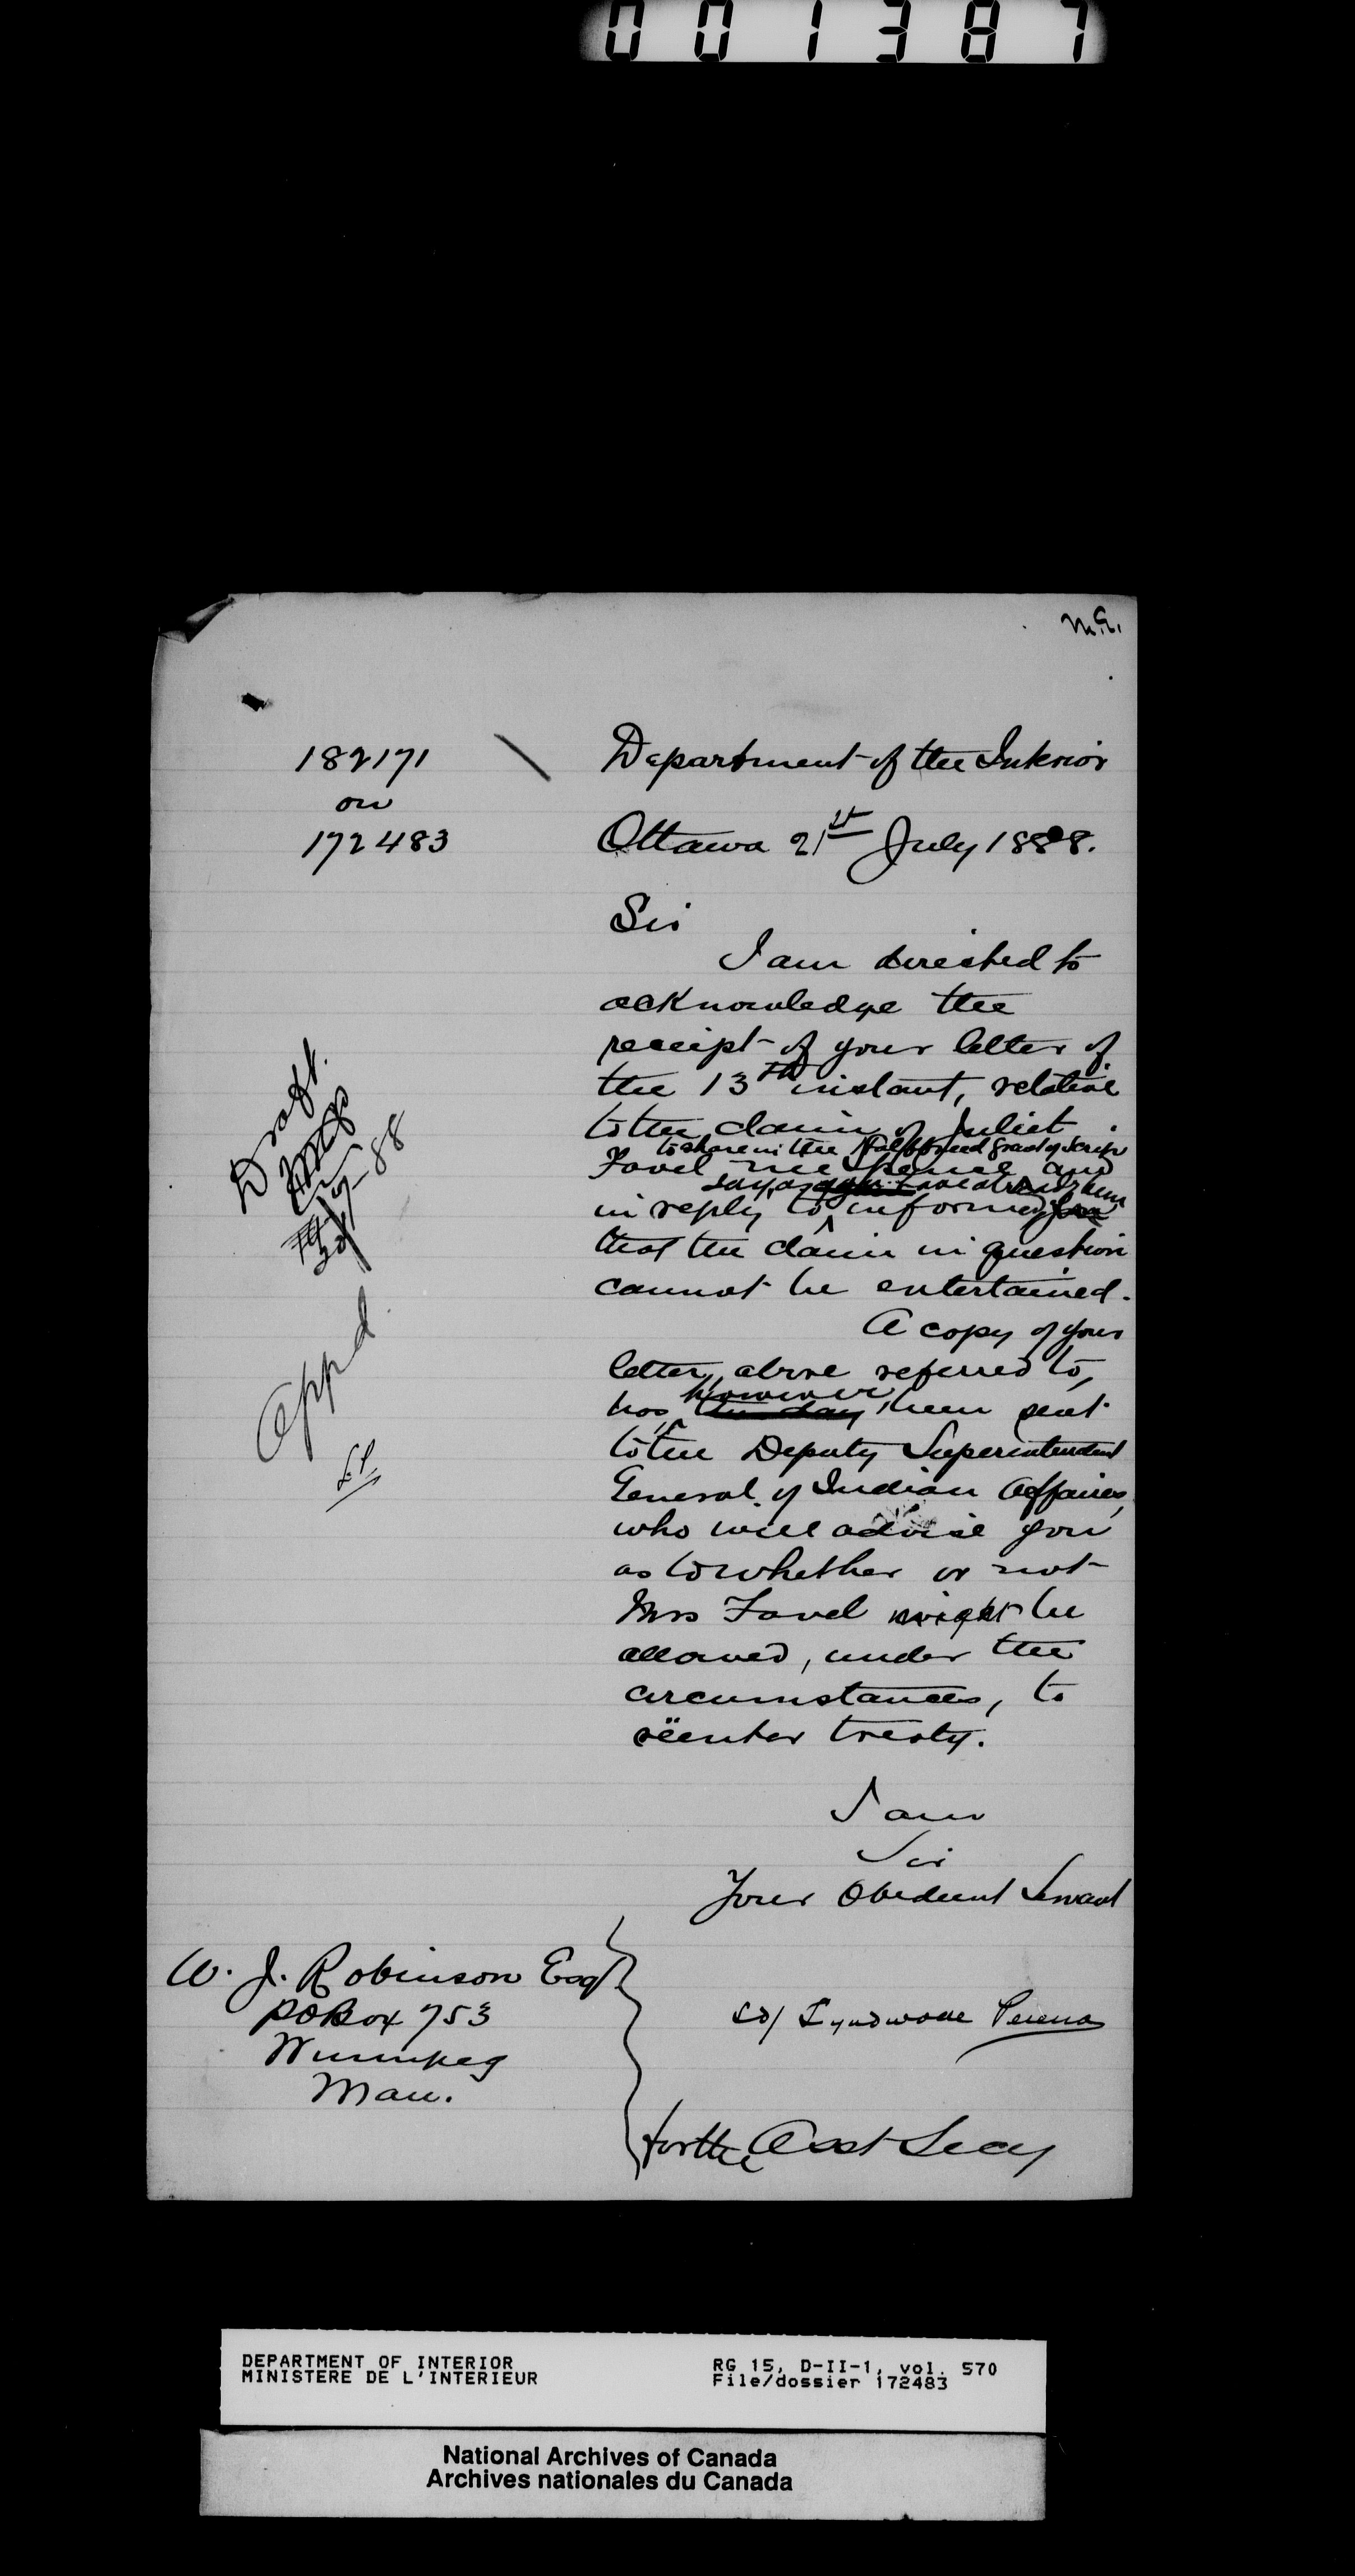 001387
182171
on
172483
Department of the Interior
Ottawa 21st July 1888.
Sir
I am directed to
acknowledge the
receipt of your letter of
the 13th instant, relative
to the claim of Juliet
to share in the Halfbreed Grant of Scrip
Favel née Spence and
say as
in reply, to inform you
that the claim in question
cannot be entertained.
A copy of your
letter, above referred to,
however
has this day been sent
to the Deputy Superintendent
General of Indian Affairs,
who will advise you
as to whether or not
Mrs Favel might be
allowed, under the
circumstances, to
reënter treaty.
I am
Sir
Your Obedient Servant
Draft.
88
Appd
W. J. Robinson Esq
PO Box 753
Winnipeg
Man.
sd/ Lyndwode Pereira
for the Asst Secy
DEPARTMENT OF INTERIOR
MINISTERE DE L'INTERIEUR
RG 15, D-II-1, vol. 570
File/dossier 172483
National Archives of Canada
Archives nationales du Canada